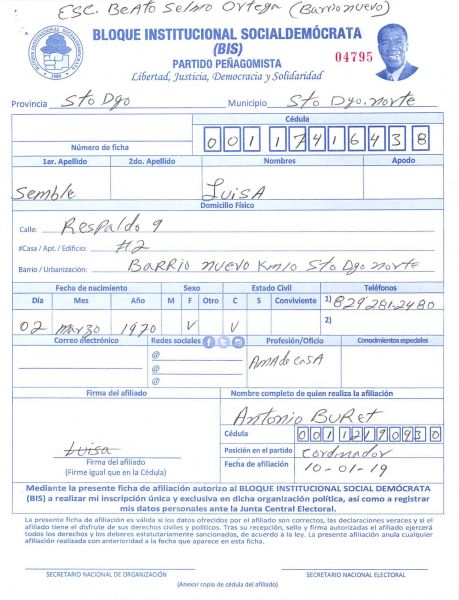 ESC. BeAto Selmo Ortega (Barrio nuevo)
BLOQUE INSTITUCIONAL SOCIALDEMÓCRATA
(BIS)
PARTIDO PEÑAGOMISTA
04795
Libertad, Justicia, Democracia y Solidaridad
Provincia Sto Dgo Municipio Sto Dgo. norte
Cédula
Número de ficha 00117416438
1er. Apellido 2do. Apellido Nombres Apodo
Semble LuisA
Domicilio Físico
Calle: Respaldo 9
#Casa / Apt. / Edificio: #2
Barrio / Urbanización: BARRIO nuevo Km10 Sto Dgo norte
Fecha de nacimiento Sexo Estado Civil Teléfonos
Día Mes Año M F Otro C S Conviviente 1) 8292812480
02 Marzo 1970 V V 2)
Correo electrónico Redes sociales Profesión/Oficio Conocimientos especiales
@ AMA de casA
@
@
Firma del afiliado Nombre completo de quien realiza la afiliación
Antonio BuRet
Cédula 00112190930
Luisa Posición en el partido Cordinador
Firma del afiliado Fecha de afiliación 10-01-19
(Firme igual que en la Cédula)
Mediante la presente ficha de afiliación autorizo al BLOQUE INSTITUCIONAL SOCIAL DEMÓCRATA
(BIS) a realizar mi inscripción única y exclusiva en dicha organización política, así como a registrar
mis datos personales ante la Junta Central Electoral.
La presente ficha de afiliación es válida si los datos ofrecidos por el afiliado son correctos, las declaraciones veraces y si el
afiliado tiene el disfrute de sus derechos civiles y políticos. Tras su recepción, sello y firma autorizadas el afiliado ejercerá
todos los derechos y los deberes estatutariamente sancionados, de acuerdo a la ley. La presente afiliación anula cualquier
afiliación realizada con anterioridad a la fecha que aparece en esta ficha.
SECRETARIO NACIONAL DE ORGANIZACIÓN SECRETARIO NACIONAL ELECTORAL
(Anexar copia de cédula del afiliado)